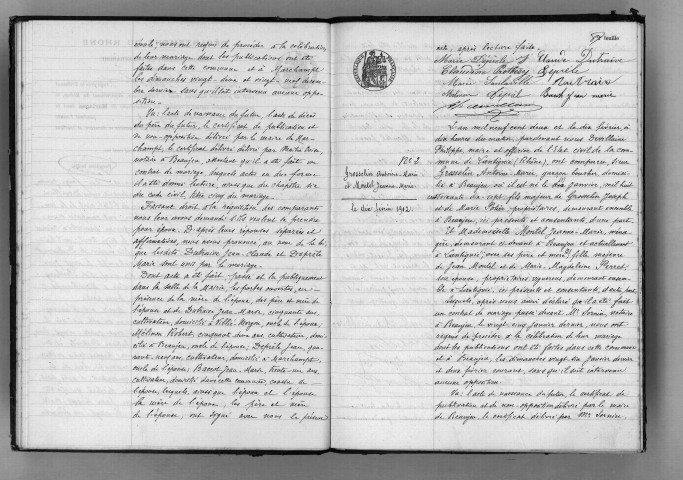 écoulé; nous ont requis de procéder à la célébration
de leur mariage dont les publications ont été
faites dans cette commune et à Marchampt
les dimanches vingt-deux et vingt-neuf décem-
bre dernier sans qu'il soit intervenu aucune oppo-
sition.
Vu: l'acte de naissance du futur, l'acte de décès
du père du futur, le certificat de publication et
de non-opposition délivré par le maire de Mar-
champt, le certificat délivré par Maître
notaire à Beaujeu, attestant qu'il a été fait un
contrat de mariage, lesquels actes en due forme
il a été donné lecture, ainsi que du chapitre six
du code civil, titre cinq du mariage.
Faisant droit à la réquisition des comparants
nous leur avons demandé s'ils veulent se prendre
pour époux. D'après leurs réponses séparées et
affirmatives, nous avons prononcé, au nom de la loi,
que lesdits Dutraive Jean Claude et Deprêle
Marie sont unis par le mariage.
Dont acte a été fait, passé et lu publiquement
dans la salle de la Mairie, les portes ouvertes, en
présence de la mère de l'époux, des père et mère de
l'épouse et de Dutraive Jean Marie, cinquante ans,
cultivateur, domicilié à Villié-Morgon, oncle de l'époux,
Robert, cinquante deux ans, cultivateur, domi-
cilié à Beaujeu, oncle de l'époux; Deprêle Jean, qua-
rante-neuf ans, cultivateur, domicilié à Marchampt,
oncle de l'épouse; Jean-Marie, trente-un ans,
cultivateur, domicilié dans cette commune, cousin de
l'épouse; lesquels, ainsi que l'époux et l'épouse
la mère de l'époux, les père et mère
de l'épouse, ont signé avec nous le présent
feuille
acte, après lecture faite.
Marie Deprêle Claude Dutraive
Deprêle
Marie
Jean marie
N° 2
Grosselin Antoine-Marie
et Montel Jeanne-Marie
Le dix février 1912.
L'an mil neuf cent douze et le dix février à
dix heures du matin, pardevant nous Devillaine
Philippe, maire et officier de l'Etat civil de la com-
mune de Lantignié (Rhône), ont comparu: Sieur
Grosselin Antoine-Marie, garçon boucher, domici-
lié à Beaujeu où il est né le dix janvier, mil huit
cent dix-sept fils majeur de Grosselin Joseph
et de Marie propriétaires, demeurant ensemble
à Beaujeu, ici présents et consentants, d'une part.
Et Mademoiselle Montel Jeanne-Marie, ména-
gère, demeurant ci-devant à Beaujeu et actuellement
à Lantignié, avec ses père et mère, fille majeure
de Jean Montel et de Marie-Magdeleine Perret
son épouse, propriétaires vignerons, demeurant ensem-
ble à Lantignié, ici présents et consentants, d'autre part.
Lesquels, après nous avoir déclaré qu'il a été fait
un contrat de mariage passé devant Me Sornin, notaire
à Beaujeu le vingt-cinq janvier dernier, nous ont
requis de procéder à la célébration de leur mariage
dont les publications ont été faites dans cette commune
et à Beaujeu, les dimanches vingt-six janvier dernier
et deux février courant, sans qu'il soit intervenu
aucune opposition.
Vu: l'acte de naissance du futur, le certificat de
publication et de non-opposition délivré par le maire
de Beaujeu, le certificat délivré par Me Sornin,